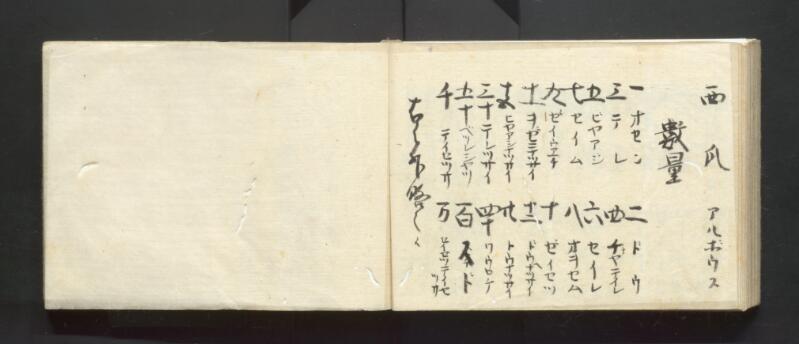 西瓜 アルボウス
數量
一 オセン 二 ドウ
三 テレ 四 チヤテイレ
五 ビヤアジ 六 セイレ
七 セイム 八 オヲセム
九 ゼイワエチ 十 ゼイセツ
十一 ヲゼニテツサイ 十二 ドウナツサイ
ビヤアジナツサイ 廿 トウナツサイ
三十 テレツサイ 四十
五十 ベツレシヤツ 百
千 テイセツサ 万 セイセツテイセツサ